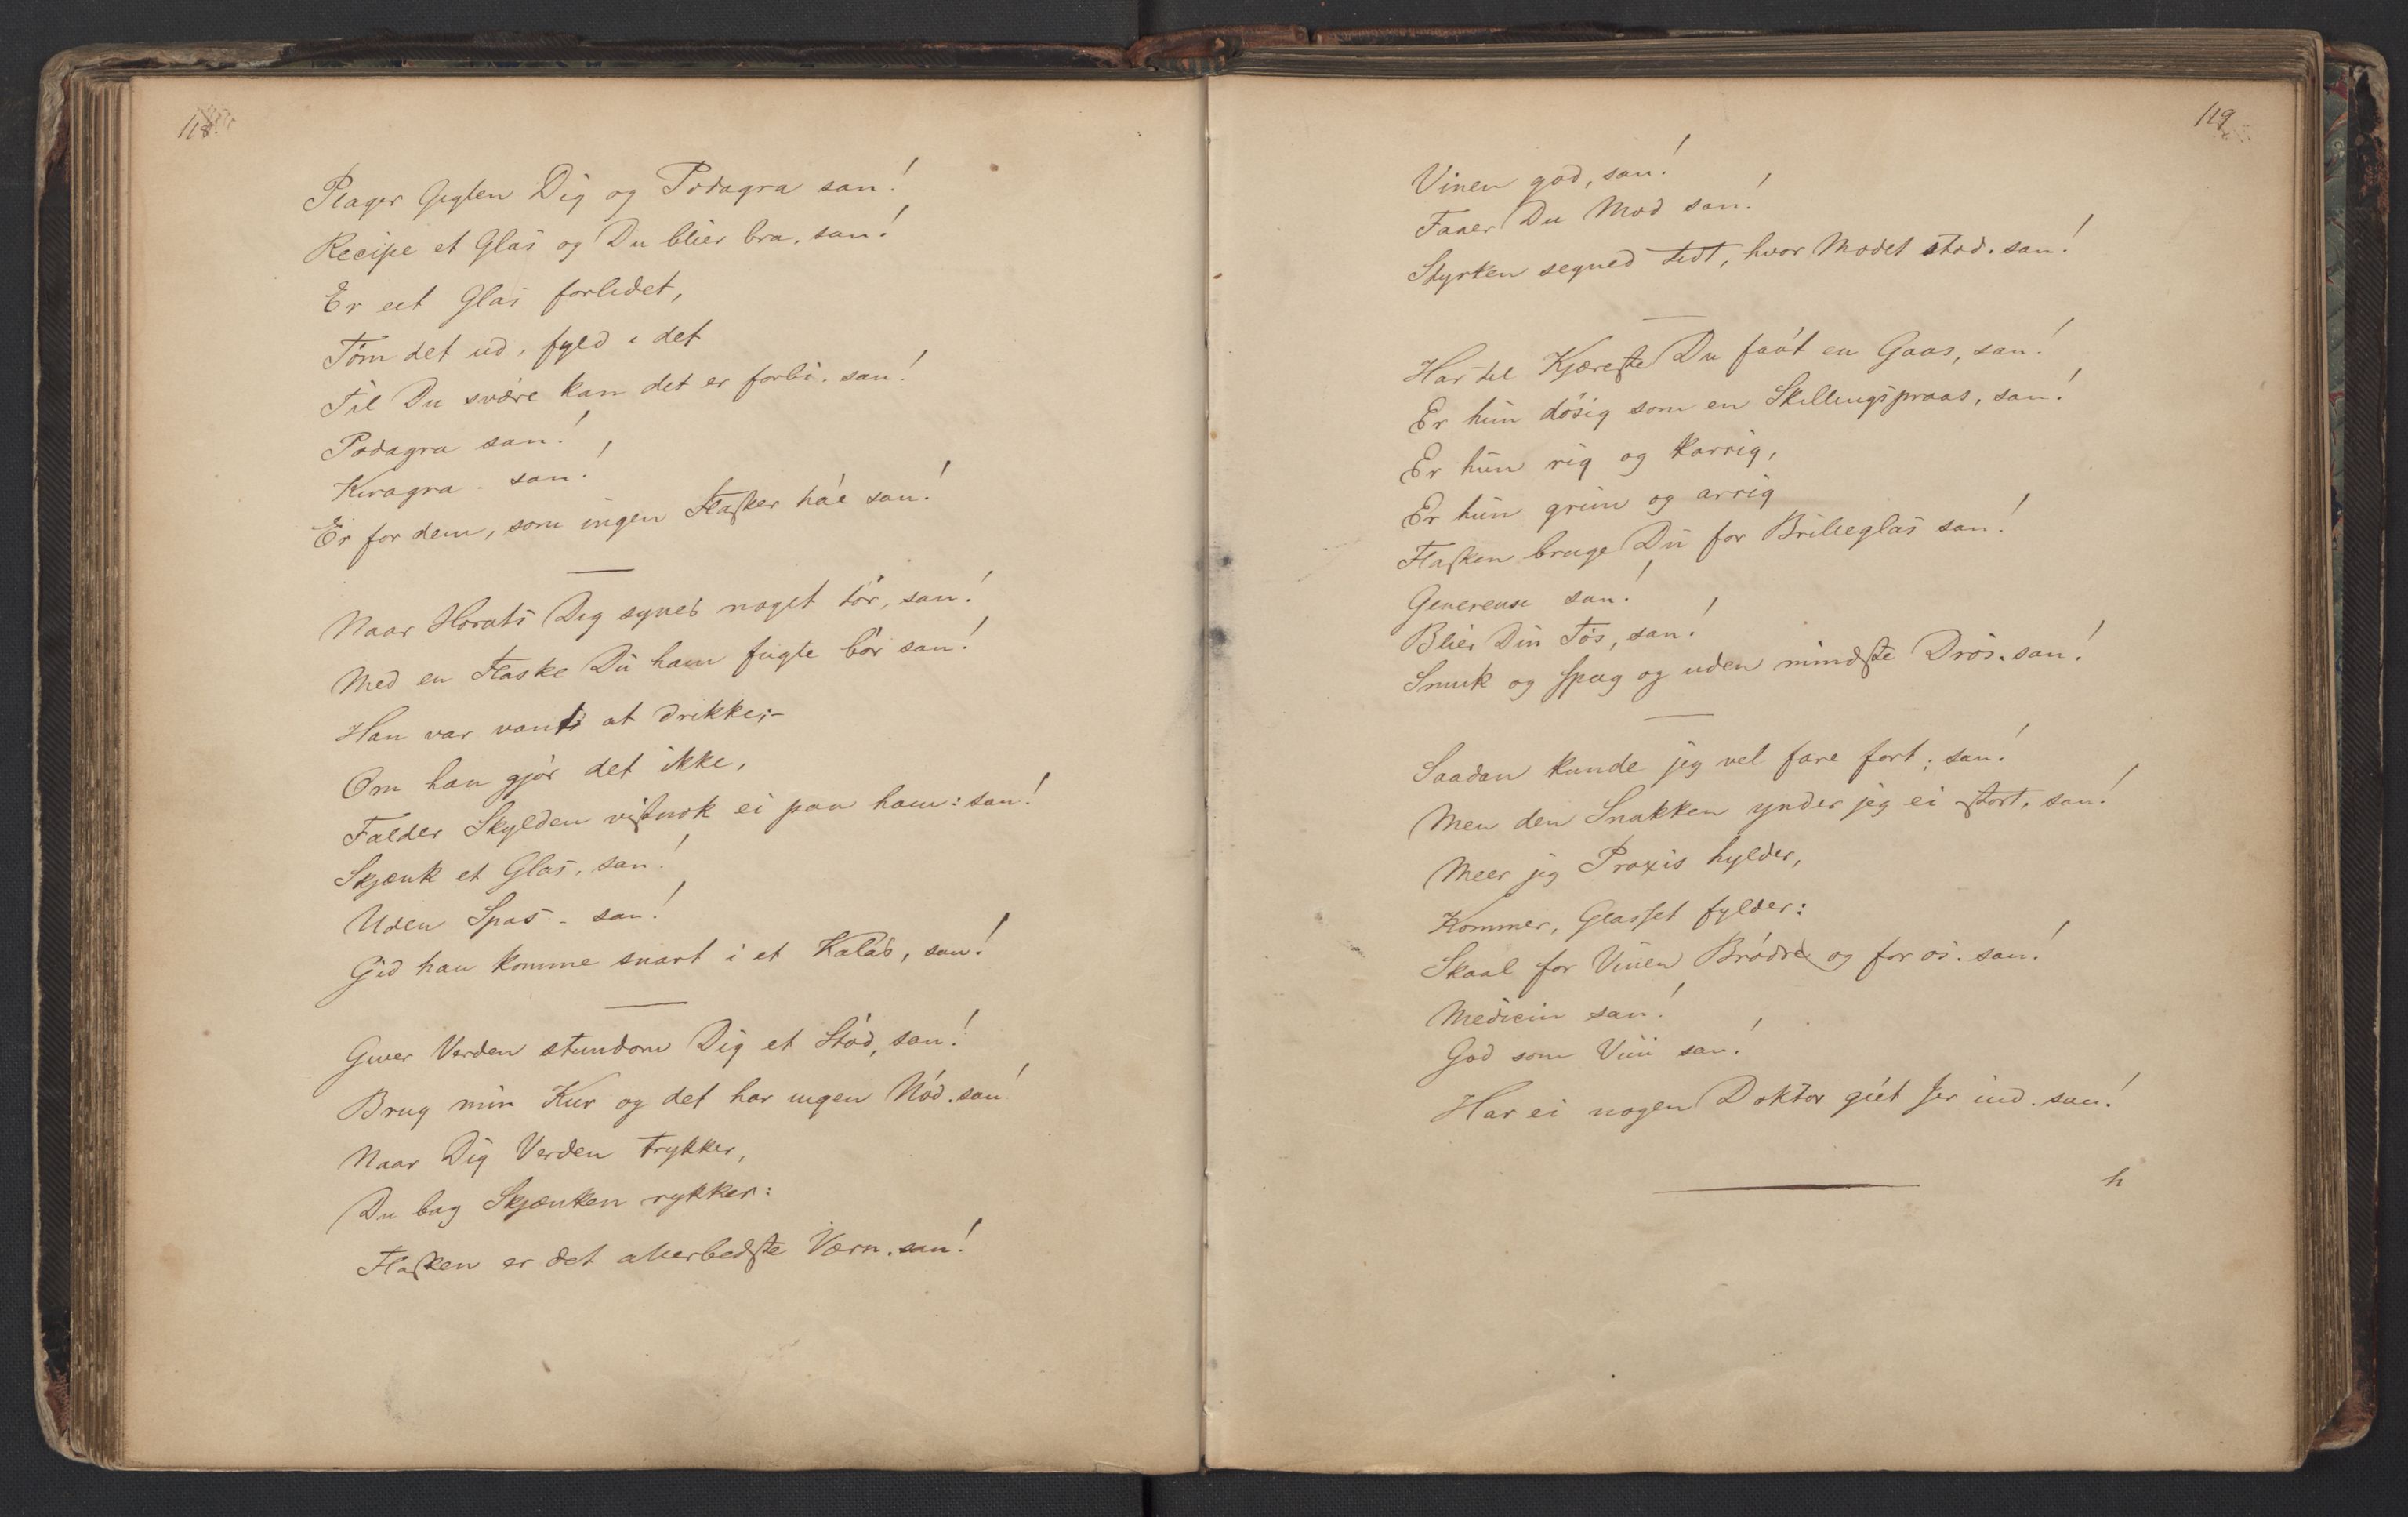 118
Plager Gigten Dig og Podagra san!
Recipe et Glas og Du blier bra. san!
Er eet Glas forlidet,
Töm det ud, fyld i det
Til Du svære kan det er forbi. san!
Podagra san!
Kiragra - san!
Er for dem, som ingen Flasker ha'e san!
Naar Horats Dig synes noget tör, san!
Med en Flaske Du ham fugte bör san!
Han var vant at drikke;-
Om han gjör det ikke,
Falder Skylden vistnok ei paa ham: san!
Skjænk et Glas, san!
Uden Spas - san!
Gid han komme snart i et Kalas, san!
Giver Verden stundom Dig et Stöd, san!
Brug min Kur og det har ingen Nöd. san!
Naar Dig Verden trykker,
Du bag Skjænken rykker:
Flasken er det allerbedste Værn. san!
119
Vinen god, san!
Faaer Du Mod san!
Styrken segned tidt, hvor Modet stod. san!
Har til Kjæreste Du faa't en Gaas, san!
Er hun dösig som en Skillingspraas, san!
Er hun rig og karrig,
Er hun grim og arrig
Flasken bruge Du for Brilleglas san!
Genereuse san!
Blier Din Tös, san!
Smuk og spag og uden mindste Drös. san!
Saadan kunde jeg vel fare fort; san!
Men den Snakken ynder jeg ei stort, san!
Meer jeg Praxis hylder,
Kommer, Glasset fylder:
Skaal for Vinen Brödre og for os. san!
Medicin san!
God som Viin san!
Har ei nogen Doktor gi'et Jer ind. san!
h